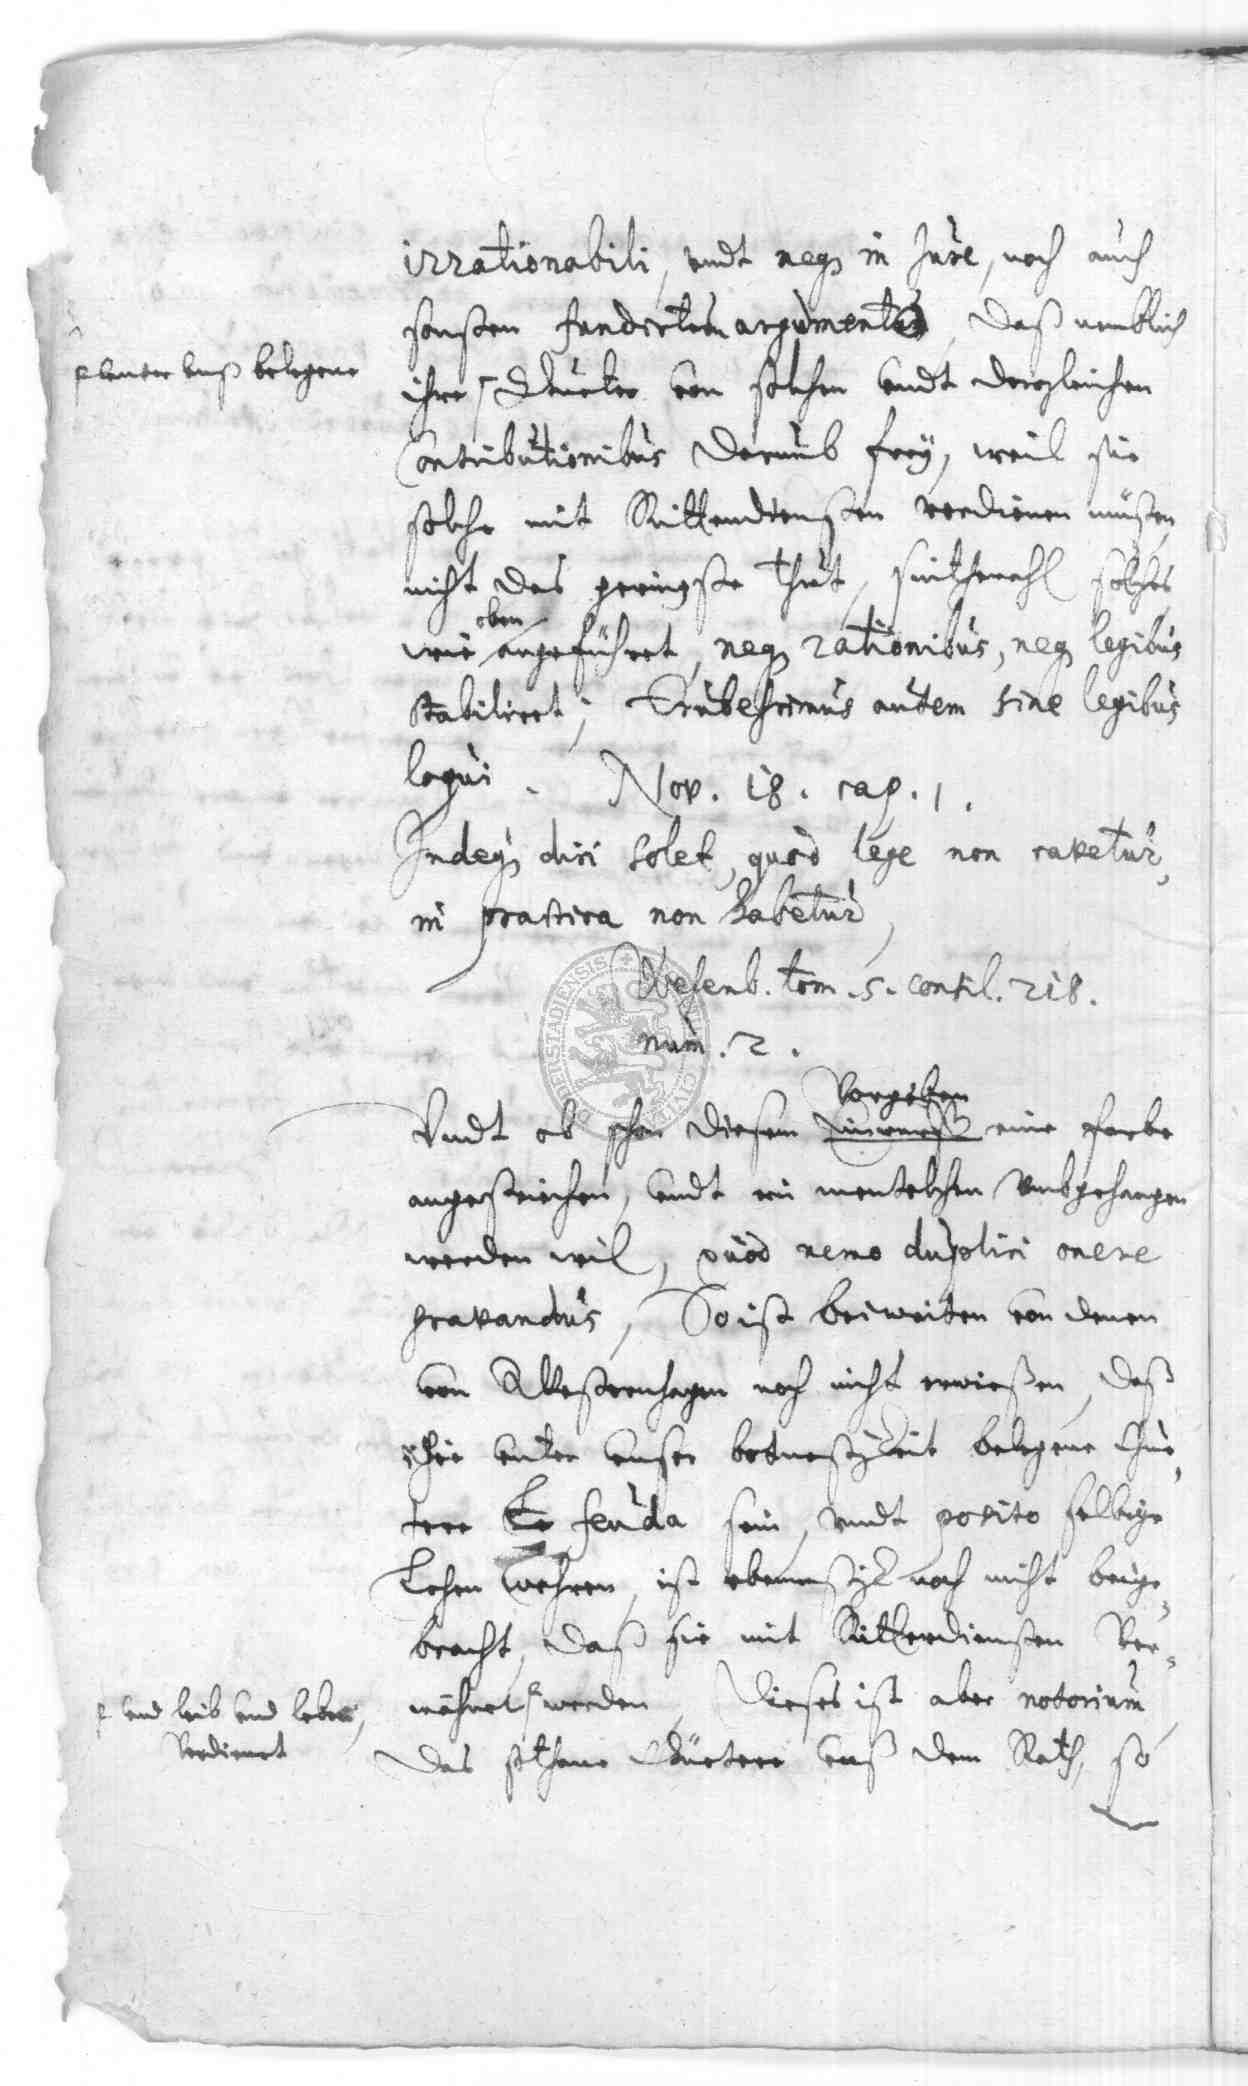 irrationabili, undt neq in Jure, noch auch
sonsten fundirten argumento, daß nemblich
unter unß belegene
ihre Güeter von solchen undt dergleichen
Contributionibus darumb frey, weil sie
solche mit Ritterdiensten verdienen müsten,
nicht das geringste thut, sintemahl solches
oben
wie angeführet, neq rationibus, neq legibus
stabiliret; Erubescimus autem sine legibus
loqui. Nov. 18. cap. 1.
Indeq dici solet, quod lege non cavetur,
in practica non habetur,
Wesenb. tom. 5. consil. 218.
num. 2.
Vorgeben
Undt ob schon diesem einwurff eine farbe
angestrichen, undt ein mentelchen umbgehangen
werden wil, quod nemo duplici onere
gravandus, So ist bei weiten von denen
von Westernhagen noch nicht erwiesen, daß
ihre unter unser botmeßigkeit belegene Güe-
tere feuda sein, undt posito selbige
Lehen wehren, ist noch nicht beige-
bracht, daß sie mit Ritterdiensten Ver-
und leib und leben,
Verdienet
werden, Dieses ist aber notorium,
das sothane Güetere auß dem Rath, so